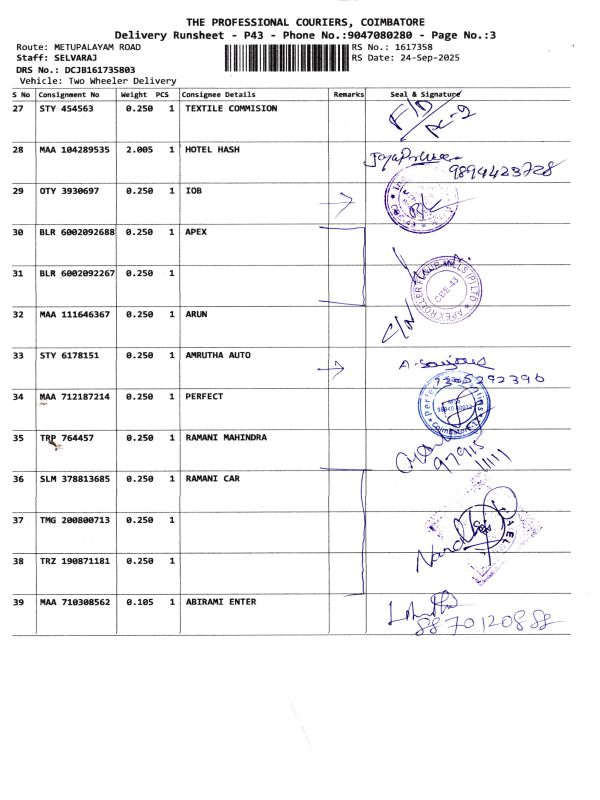 THE PROFESSIONAL COURIERS, COIMBATORE
Delivery Runsheet - P43 - Phone No.:9047080280 - Page No.:3
Route: METUPALAYAM ROAD RS No.: 1617358
Staff: SELVARAJ RS Date: 24-Sep-2025
DRS No.: DCJB161735803
Vehicle: Two Wheeler Delivery
S No Consignment No Weight PCS Consignee Details Remarks Seal & Signature
27 STY 454563 0.250 1 TEXTILE COMMISION
28 MAA 104289535 2.005 1 HOTEL HASH
9894423728
29 OTY 3930697 0.250 1 IOB
30 BLR 6002092688 0.250 1 APEX
31 BLR 6002092267 0.250 1
CBE-43
32 MAA 111646367 0.250 1 ARUN
33 STY 6178151 0.250 1 AMRUTHA AUTO
34 MAA 712187214 0.250 1 PERFECT
35 TRP 764457 0.250 1 RAMANI MAHINDRA
97915
11111
36 SLM 378813685 0.250 1 RAMANI CAR
37 TMG 200800713 0.250 1
38 TRZ 190871181 0.250 1
39 MAA 710308562 0.105 1 ABIRAMI ENTER
8870120888